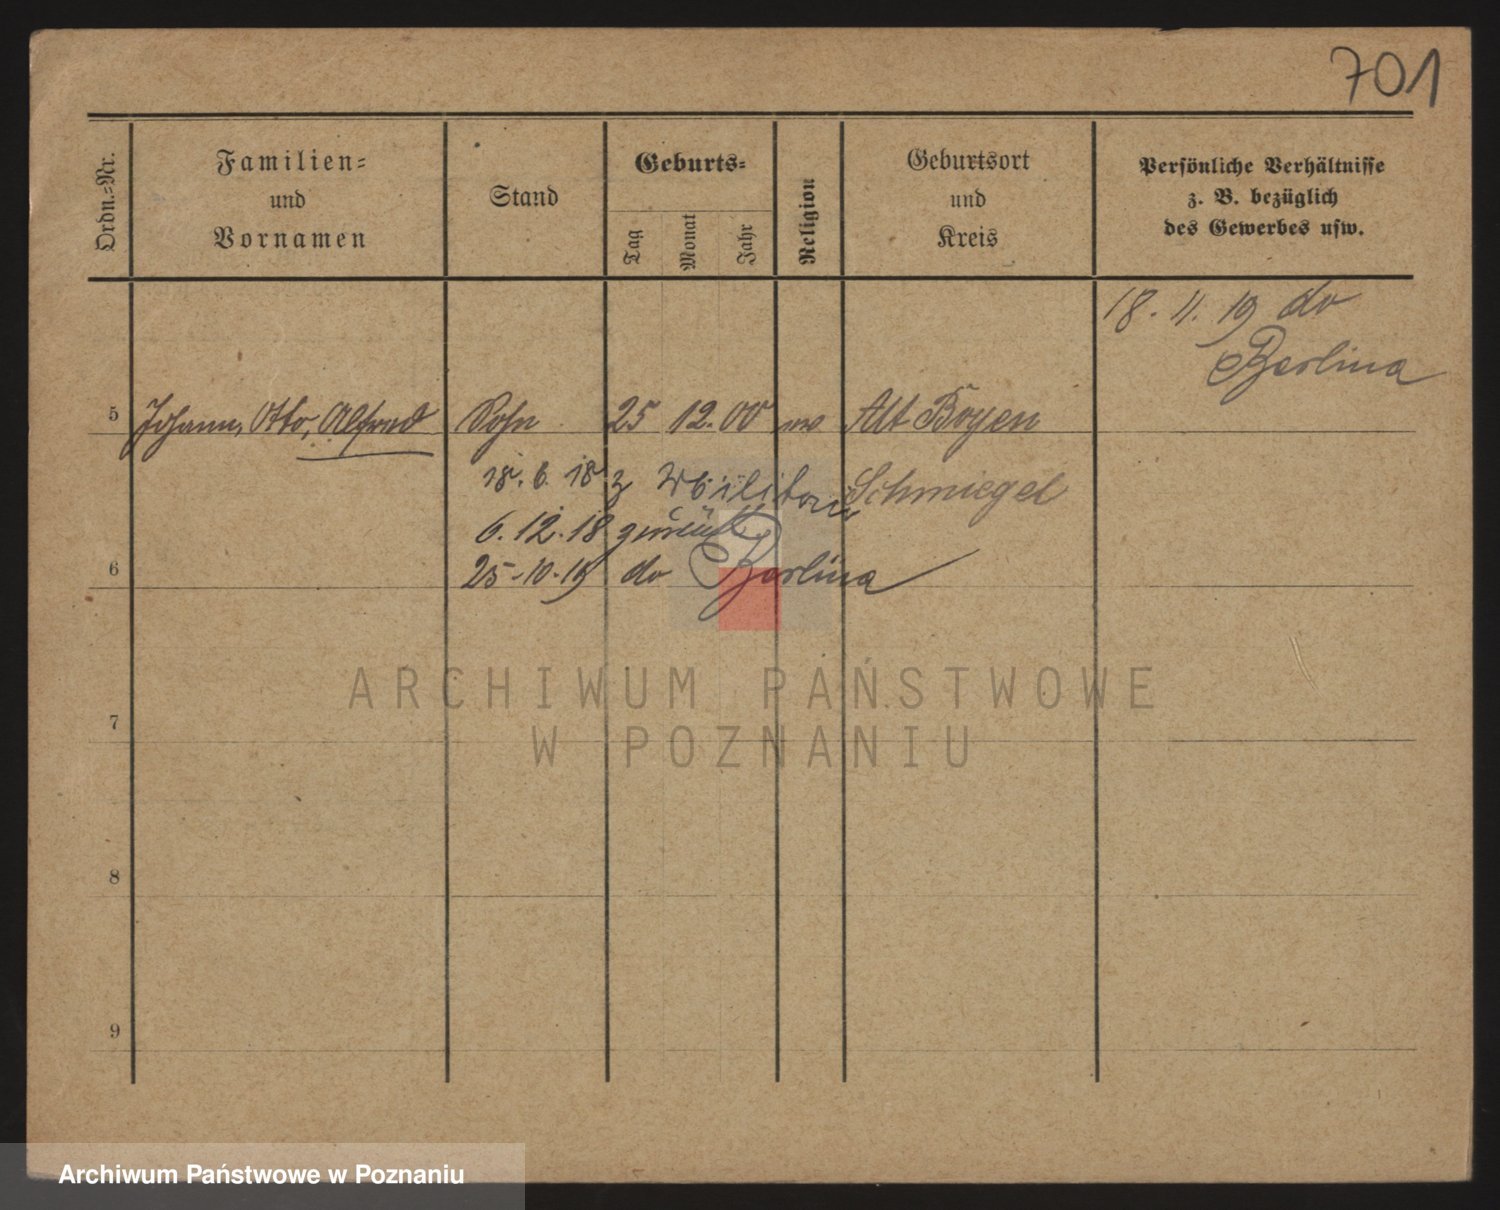 701
Ordn.-Nr.
Familien-
und
Vornamen
Stand
Geburts-
Tag
Monat
Jahr
Religion
Geburtsort
und
Kreis
Persönliche Verhältnisse
z. B. bezüglich
des Gewerbes usw.
18. 11. 19 do
Berlina
5 Johann, Otto, Alfred Sohn 25 12. 00 Alt Boyen
18. 6. 18 z Militär Schmiegel
6. 12. 18 zurück
6 25-10-19 do Berlina
ARCHIWUM PAŃSTWOWE
W POZNANIU
7
8
9
Archiwum Państwowe w Poznaniu